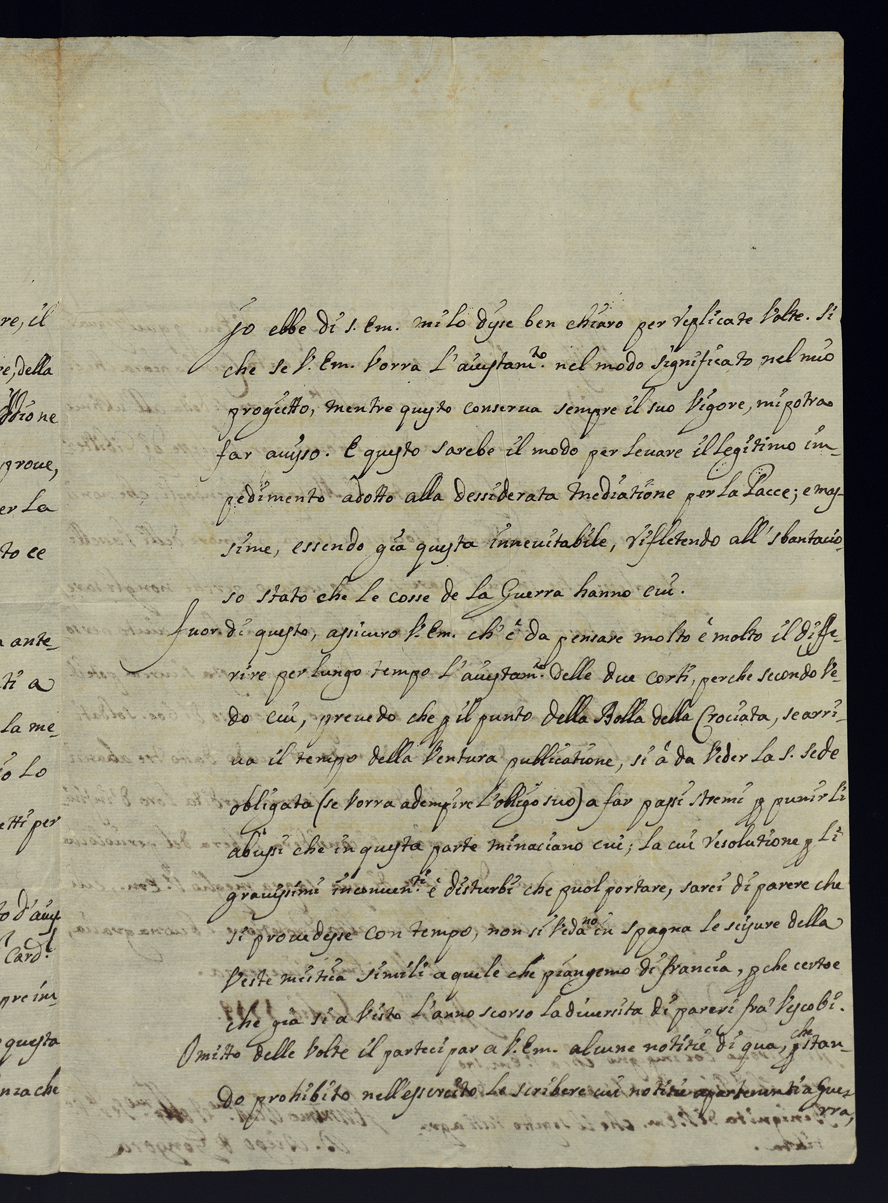 re, il
re, della
ssione
grove,
er La
to ee
a ante_
ti a
La me_
o Lo
etti per
to d'auis
Card.l
pre im_
questa
nza che
Jo ebbe di S. Em. mi lo dyse ben chiaro per replicate Volte. Si
che se V. Em. Vorra L'auystam.to nel modo significato nel mio
progietto, mentre questo conserua sempre il suo Vigore, mi potra
far auyso. E questo sarebe il modo per Leuare il Legitimo im_
pedimento adotto alla dessiderata mediatione per La Pacce; e mas_
sime, essendo già questa inneuitabile, rifletendo all'sbantacio_
so stato che Le cosse de la Guerra hanno cui.
fuor di questo, assicuro V. Em. ch'è da pensare molto è molto il diffe_
rire per Lungo tempo L'auystam.to delle due corti, perche secondo Ve_
do cui, preuedo che p il punto della Bolla della Crociata, se arri_
ua il tempo della Ventura publicatione, si à da Veder La S. Sede
obligata (se Vorra adempire L'obligo suo) a far passi stremi p punir Li
abussi che in questa parte minaciano cui; La cui resolutione p Li
grauissimi inconuen.ti è disturbi che puol portare, sarei di parere che
si prouedesse con tempo, non si Vedano in Spagna Le scisure della
Veste mistica simili a quele che piangemo di francia, p che certo e
che già si a Visto L'anno scorso La diuersita di pareri fra' Vescobi.
Omitto delle Volte il participar a V. Em. alcune notitie di qua, p che stan_
do prohibito nell'essercito Le scribere cui notitie apartenenti a Gue_
rra,